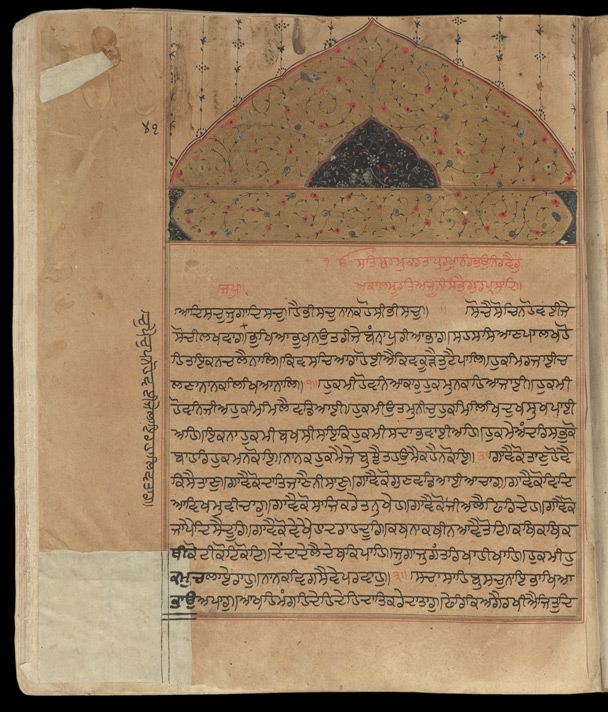 ੴ ਸਤਿਨਾਮੁਕਰਤਾਪੁਰਖੁਨਿਰਭਉਨਿਰਵੈਰੁ
ਅਕਾਲਮੂਰਤਿਅਜੂਨੀਸੈਭੰਗੁਰਪ੍ਰਸਾਦਿ॥
ਜਪੁ॥
॥ਆਦਿਸਚੁਜੁਗਾਦਿਸਚੁ॥ਹੈਭੀਸਚੁਨਾਨਕਹੋਸੀਭੀਸਚੁ॥੧॥ ਸੋਚੈਸੋਚਿਨਹੋਵਈਜੇ
ਸੋਚੀਲਖਵਾਰ॥ਭੁਖਿਆਭੁਖਨਉਤਰੀਜੇਬੰਨਾਪੁਰੀਆਭਾਰ॥ਸਹਸਸਿਆਣਪਾਲਖਹੋ
ਹਿਤਾਇਕਨਚਲੈਨਾਲਿ॥ਕਿਵਸਚਿਆਰਾਹੋਈਐਕਿਵਕੂੜੈਤੁਟੈਪਾਲਿ॥ਹੁਕਮਿਰਜਾਈਚ
ਲਣਾਨਾਨਕਲਿਖਿਆਨਾਲਿ॥੧॥ਹੁਕਮੀਹੋਵਨਿਆਕਾਰਹੁਕਮੁਨਕਹਿਆਜਾਈ॥ਹੁਕਮੀ
ਹੋਵਨਿਜੀਅਹੁਕਮਿਮਿਲੈਵਡਿਆਈ॥ਹੁਕਮੀਉਤਮੁਨੀਚੁਹੁਕਮਿਲਿਖਿਦੁਖਸੁਖਪਾਈ
ਅਹਿ॥ਇਕਨਾਹੁਕਮੀਬਖਸੀਸਇਕਿਹੁਕਮੀਸਦਾਭਵਾਈਅਹਿ॥ਹੁਕਮੈਅੰਦਰਿਸਭੁਕੋ
ਬਾਹਰਿਹੁਕਮਨਕੋਇ॥ਨਾਨਕਹੁਕਮੈਜੇਬੁਝੈਤਹਉਮੈਕਹੈਨਕੋਇ॥੨॥ਗਾਵੈਕੋਤਾਣੁਹੋਵੈ
ਕਿਸੈਤਾਣੁ॥ਗਾਵੈਕੋਦਾਤਿਜਾਣੈਨੀਸਾਣੁ॥ਗਾਵੈਕੋਗੁਣਵਡਿਆਈਆਚਾਰ॥ਗਾਵੈਕੋਵਿਦਿ
ਆਵਿਖਮੁਵੀਚਾਰੁ॥ਗਾਵੈਕੋਸਾਜਿਕਰੇਤਨੁਖੇਹ॥ਗਾਵੈਕੋਜੀਅਲੈਫਿਰਿਦੇਹ॥ਗਾਵੈਕੋ
ਜਾਪੈਦਿਸੈਦੂਰਿ॥ਗਾਵੈਕੋਵੇਖੈਹਾਦਰਾਹਦੂਰਿ॥ਕਥਨਾਕਥੀਨਆਵੈਤੋਟਿ॥ਕਥਿਕਥਿਕ
ਥੀਕੋਟੀਕੋਟਿਕੋਟਿ॥ਦੇਂਦਾਦੇਲੈਦੇਥਕਿਪਾਹਿ॥ਜੁਗਾਜੁਗੰਤਰਿਖਾਹੀਖਾਹਿ॥ਹੁਕਮੀਹੁ
ਕਮੁਚਲਾਏਰਾਹੁ॥ਨਾਨਕਵਿਗਸੈਵੇਪਰਵਾਹੁ॥੩॥ਸਾਚਾਸਾਹਿਬੁਸਾਚੁਨਾਇਭਾਖਿਆ
ਭਾਉਅਪਾਰੁ॥ਆਖਹਿਮੰਗਹਿਦੇਹਿਦੇਹਿਦਾਤਿਕਰੇਦਾਤਾਰੁ॥ਫੇਰਿਕਿਅਗੈਰਖੀਐਜਿਤੁਦਿ